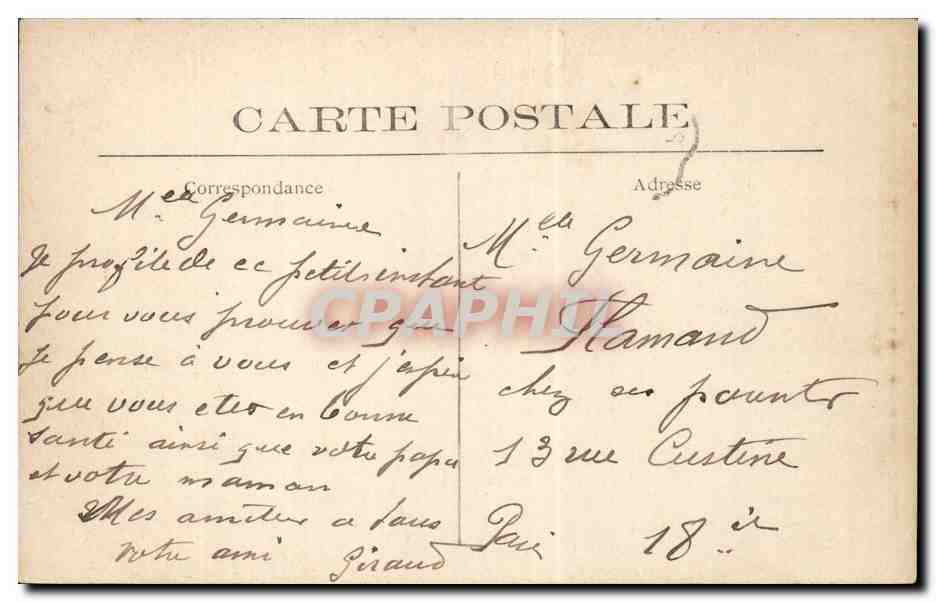 CARTE POSTALE
Correspondance
Mlle Germaine
Je profite de ce petits instant
pour vous prouver que
je pense à vous et j'espère
que vous etes en bonne
santé ainsi que votre papa
et votre maman
Mes amitiés a tous
votre ami Giraud
Adresse
Mlle Germaine
Flamand
chez ses parents
13 rue Custine
Paris 18
CPAPHIL